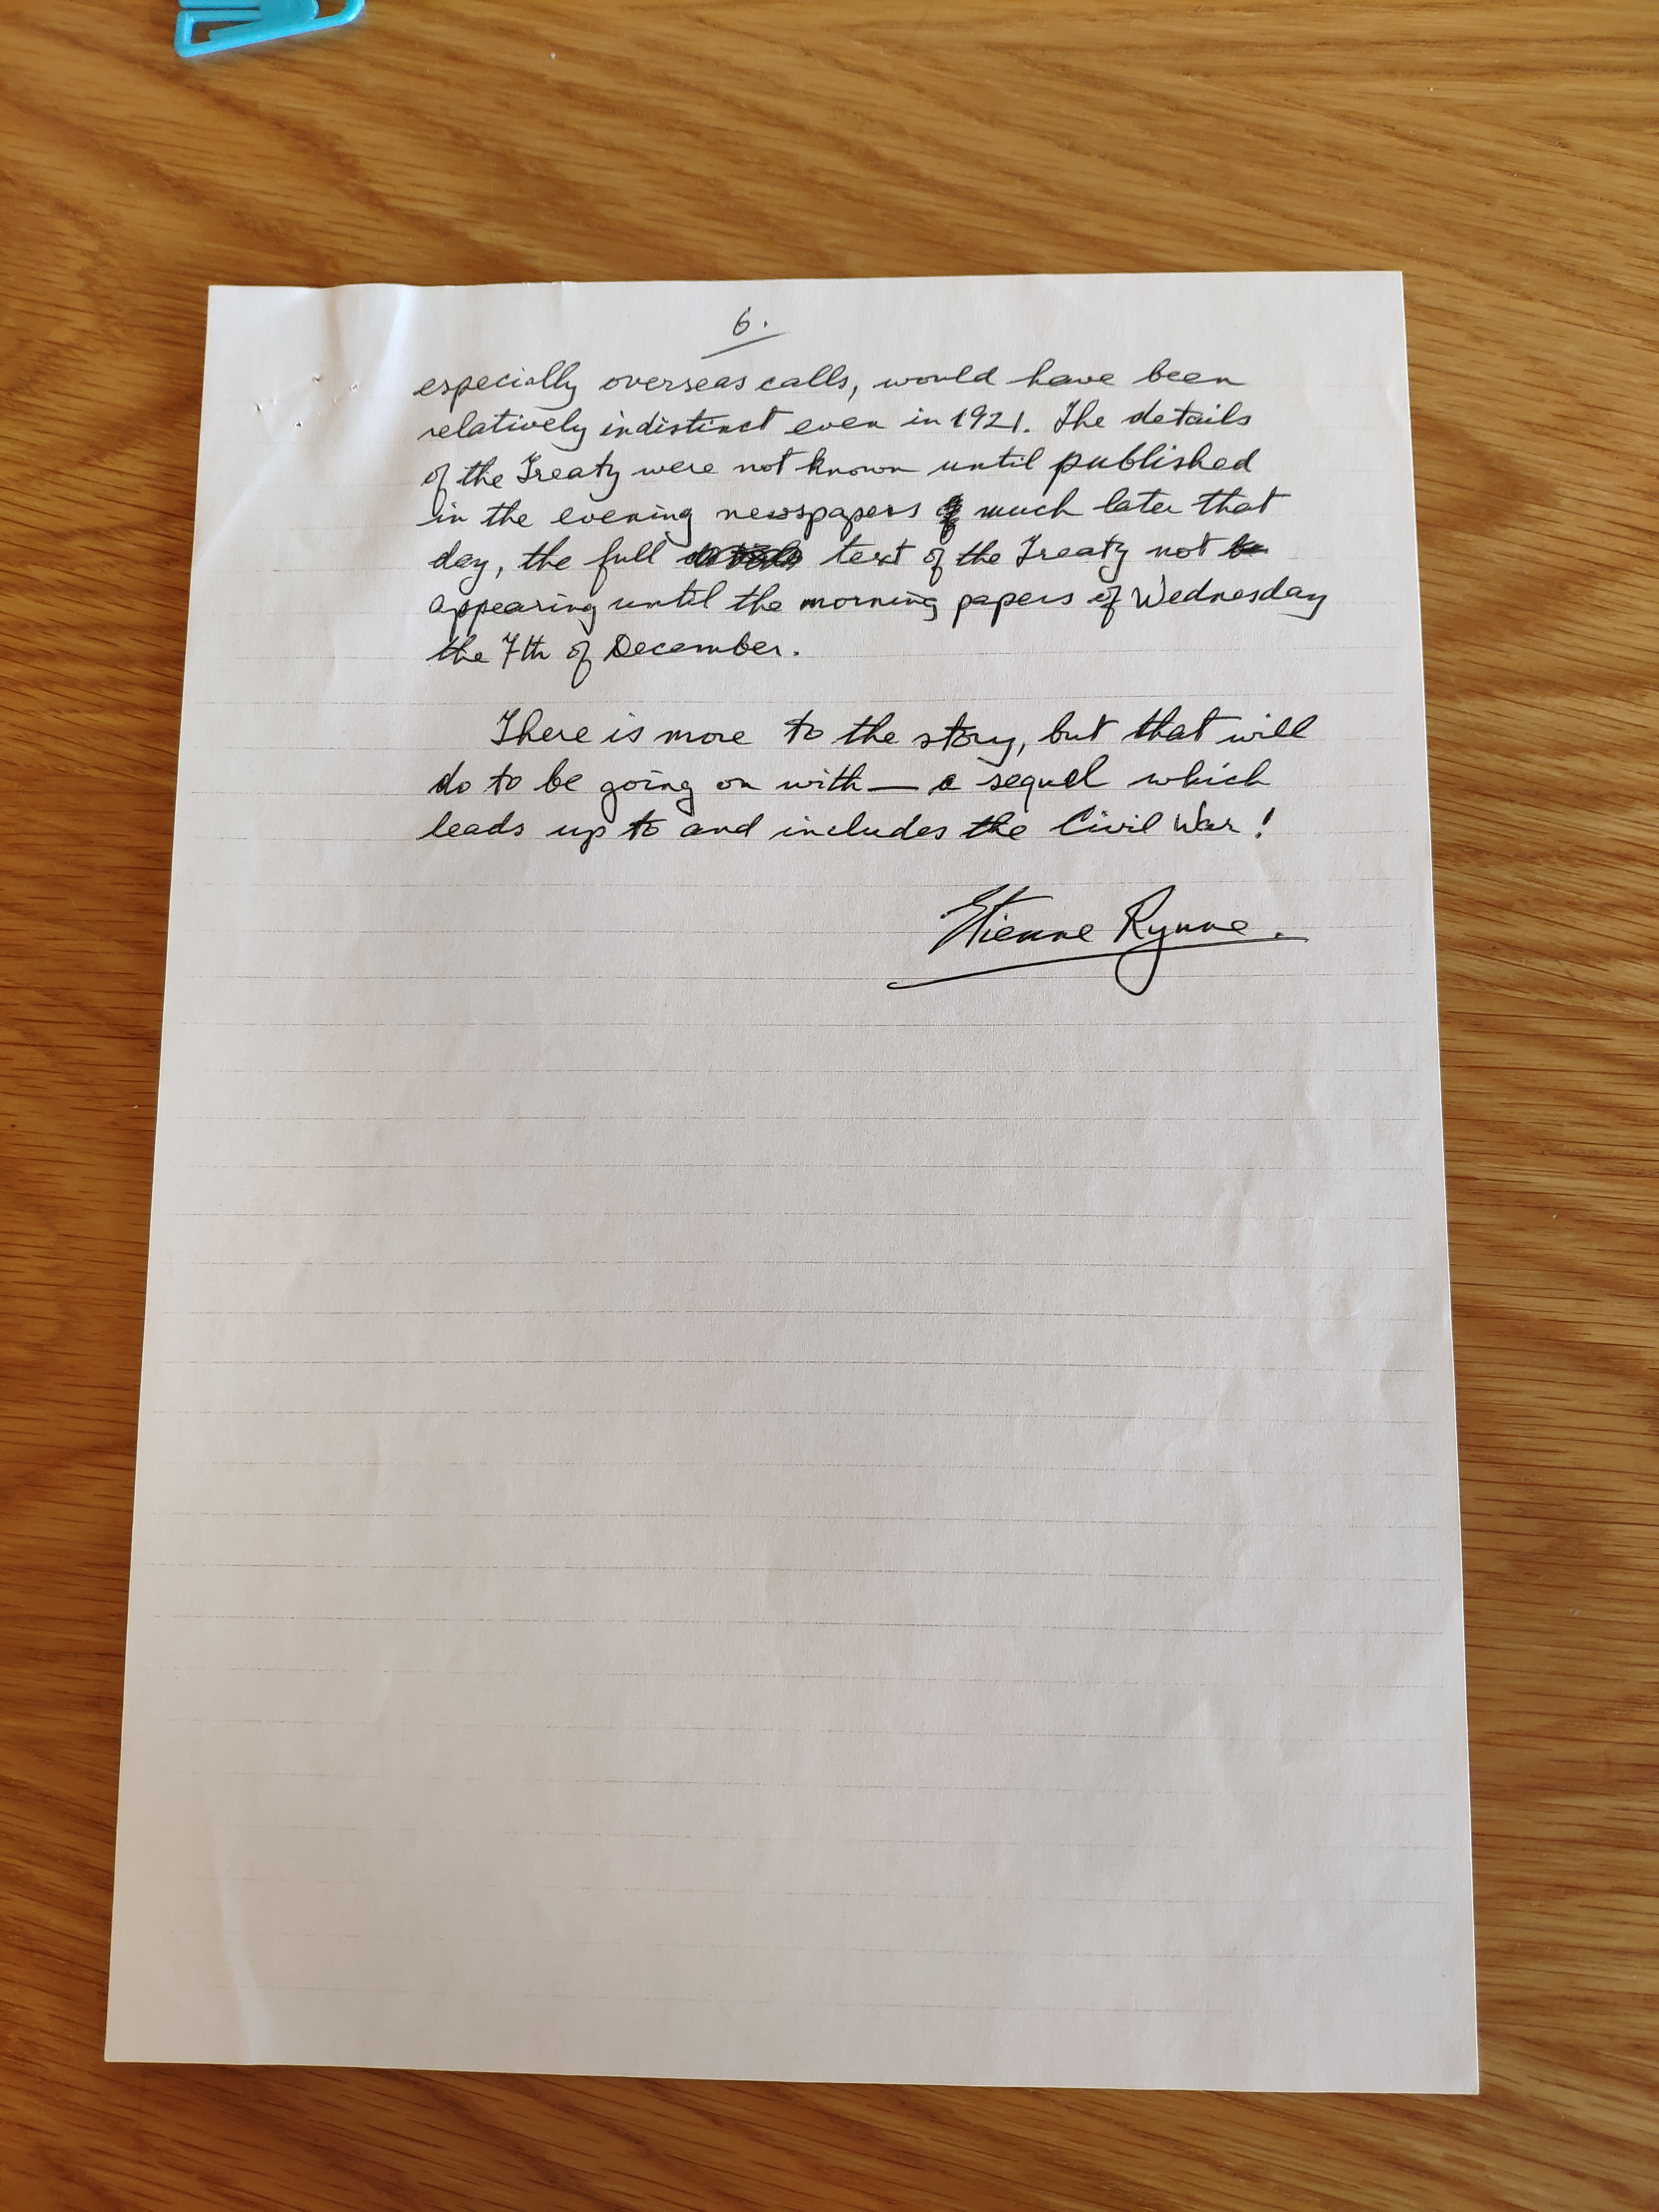 6.
especially overseas calls, would have been
relatively indistinct even in 1921. The details
of the Treaty were not known until published
in the evening newspapers much later that
day, the full text of the Treaty not
appearing until the morning papers of Wednesday
the 7th of December.
There is more to the story, but that will
do to be going on with — a sequel which
leads up to and includes the Civil War!
Etienne Rynne.